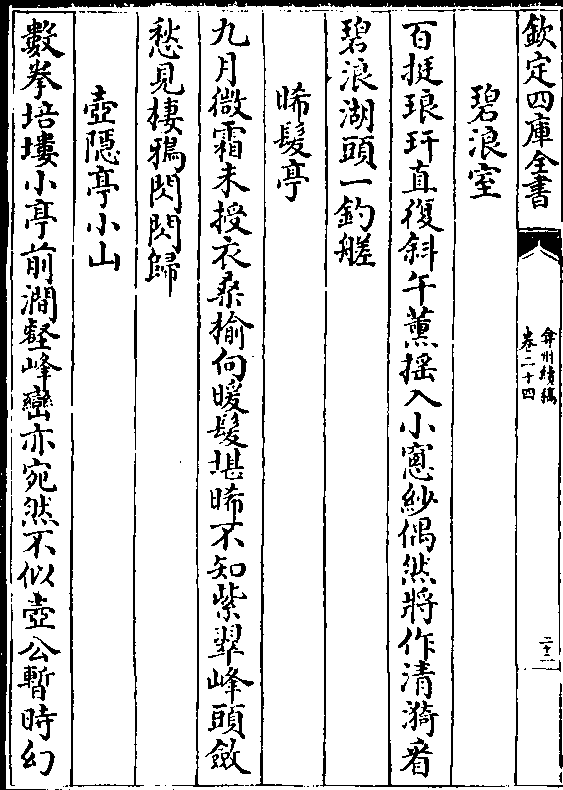 欽定四庫全書
弇州續稿
卷二十四
二十二
碧浪室
百挺琅玕直復斜午薰揺入小窻紗偶然將作清漪看
碧浪湖頭一釣艖
晞髮亭
九月微霜未授衣桑榆向暖髮堪晞不知紫翠峰頭斂
愁見棲鴉閃閃歸
壺隱亭小山
數拳培塿小亭前澗壑峰巒亦宛然不似壺公暫時幻